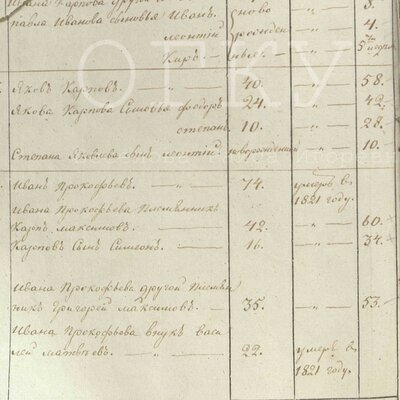 Павла Иванова сыновья Иванъ ново 3.
Леонтій рожден 4.
Киръ ные. 5 недѣл.
Яковъ Карповъ. 40. 58.
Якова Карпова сыновья Федоръ 24. 42.
Степанъ 10. 28.
Степана Яковлева сынъ Леонтій новорожденный 10.
Иванъ Прокофьевъ. 74. умеръ въ
1821 году.
Ивана Прокофьева племянникъ
Карпъ Максимовъ. 42. 60.
Карповъ сынъ Симеонъ. 16. 34.
Ивана Прокофьева другой племян
никъ Григорей Максимовъ. 35. 53.
Ивана Прокофьева внукъ Васи
лей Матвѣевъ. 22. умеръ въ
1821 году.